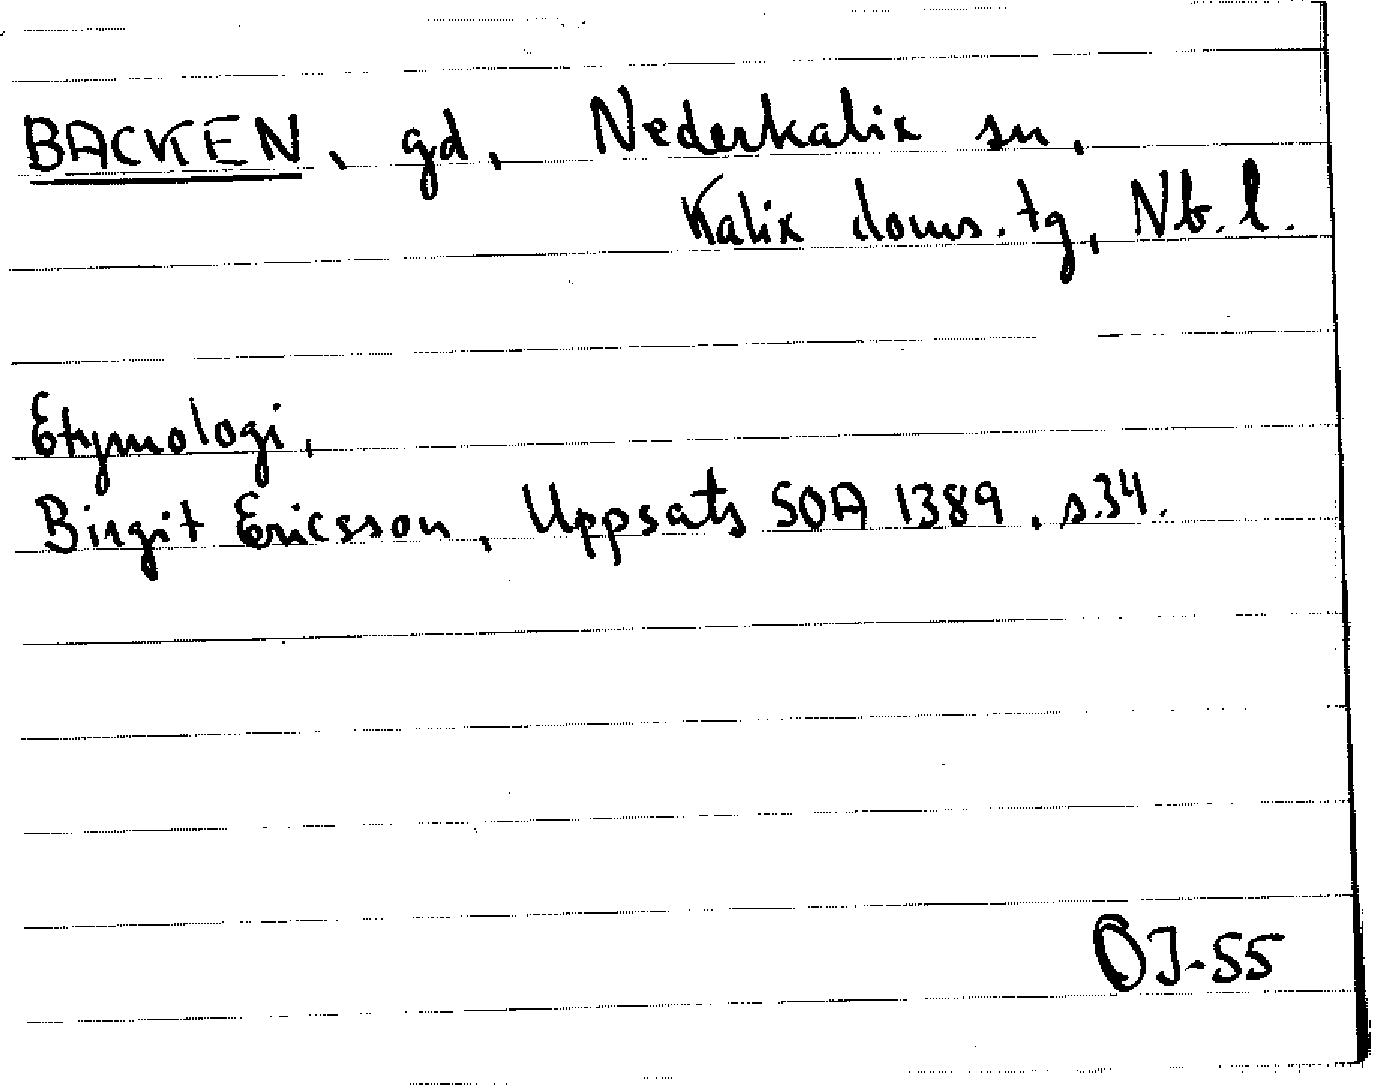 BACKEN, gd, Nederkalix sn,
Kalix doms. tg, Nb. l.
Etymologi,
Birgit Ericsson, Uppsats SOA 1389, s.34.
OJ-55